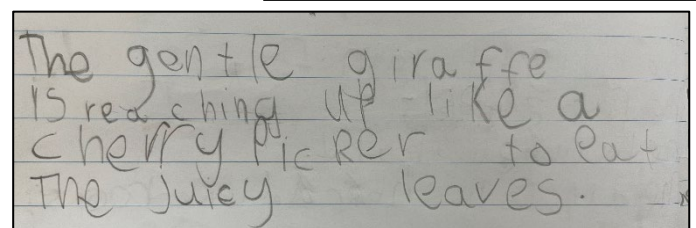 The gentle giraffe
is reaching up like a
cherry Picker to eat
The juicy leaves.